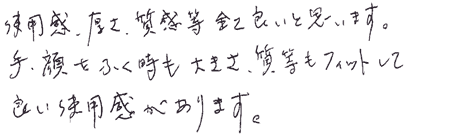 使用感、厚さ、質感等全て良いと思います。
手、顔をふく時も大きさ、質等もフィットして
良い使用感があります。